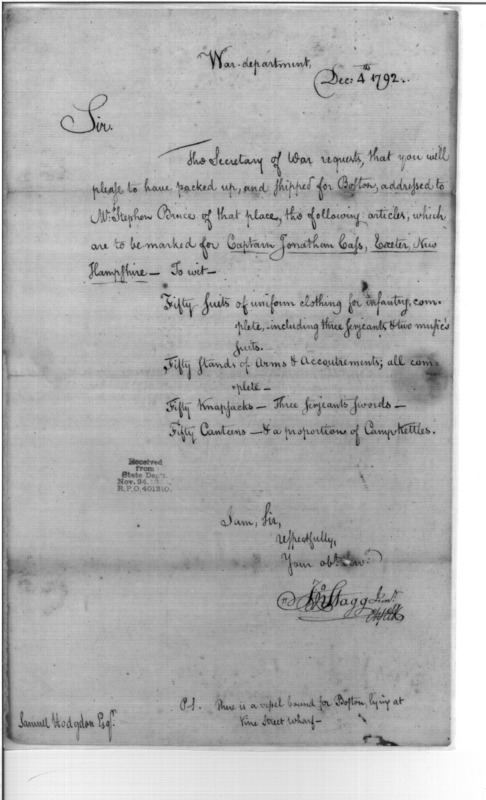 War-department,
Dec: 4th 1792.
Sir.
The Secretary of War requests, that you will
please to have packed up, and shipped for Boston, addressed to
Mr. Stephen Bruce of that place, the following articles; which
are to be marked for Captain Jonathan Cass, Exeter, New
Hampshire — To wit —
Fifty suits of uniform clothing for infantry, com-
plete, including three serjeants & two music's
suits. —
Fifty stands of Arms & Accoutrements; all com-
plete —
Fifty Knapsacks — Three serjeants swords —
Fifty Canteens — & a proportion of Camp Kettles.
Received
from
State Dept.
Nov. 24,
R.P.O. 401310.
I am, Sir,
respectfully,
Your obt. serv.
Jno Stagg Junr.
Chf Clk
P.S. There is a vessel bound for Boston, lying at
Vine Street wharf —
Samuel Hodgdon Esqr.